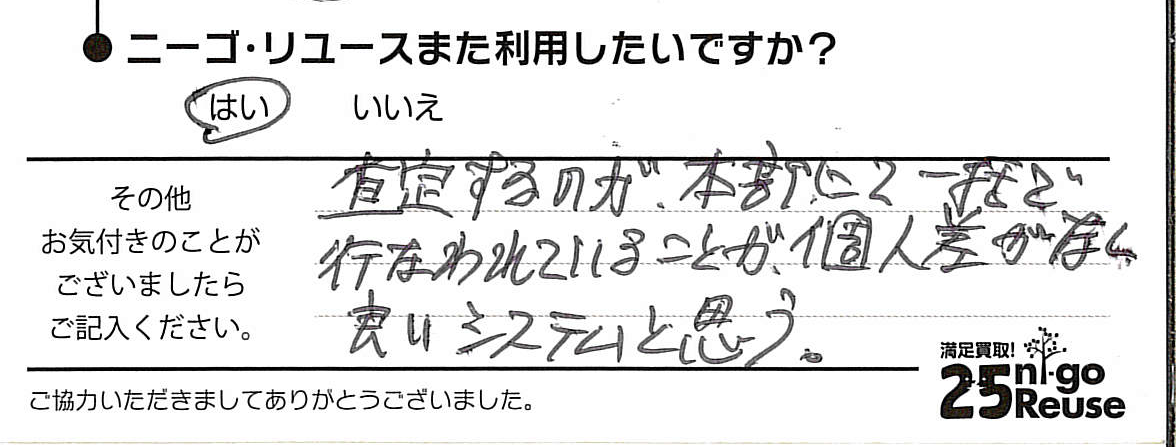 ニーゴ・リユースまた利用したいですか？
はい いいえ
その他
お気付きのことが
ございましたら
ご記入ください。
査定するのが、本部にて一括で
行なわれていることが、個人差がなく
良いシステムと思う。
ご協力いただきましてありがとうございました。
満足買取!
25 ni-go
Reuse